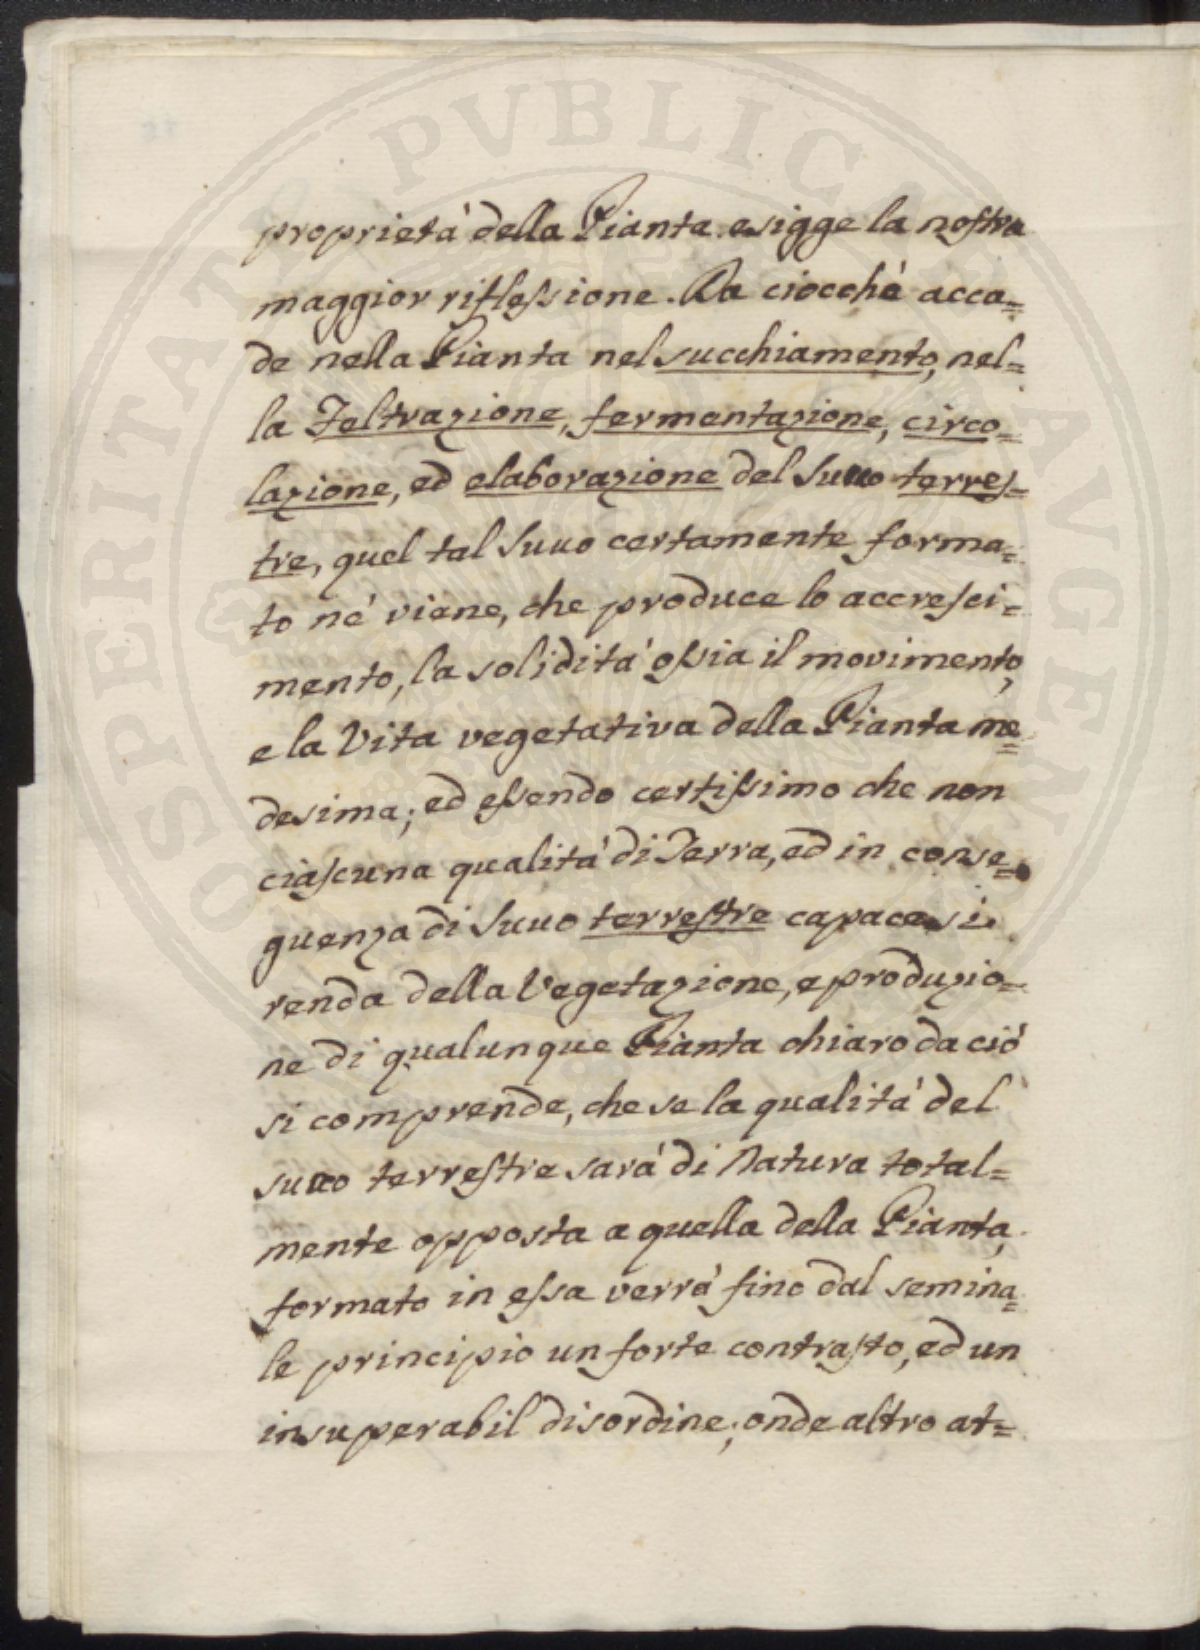 proprietá della Pianta esigge la nostra
maggior riflessione. Da ciocchè acca=
de nella Pianta nel succhiamento, nel=
la Feltrazione, fermentazione, circo=
lazione, ed elaborazione del Succo terres=
tre, quel tal Succo certamente forma=
to né viene, che produce lo accresci=
mento, la soliditá ossia il movimento,
e la Vita vegetativa della Pianta me=
desima; ed essendo certissimo che non
ciascuna qualitá di Terra, ed in conse=
guenza di Succo terrestre capace si
renda della Vegetazione, e produzio=
ne di qualunque Pianta chiaro da ció
si comprende, che se la qualitá del
succo terrestre sará di Natura total=
mente opposta a quella della Pianta,
formato in essa verrá fino dal semina=
le principio un forte contrasto, ed un
insuperabil disordine; onde altro at=
PUBLICAE